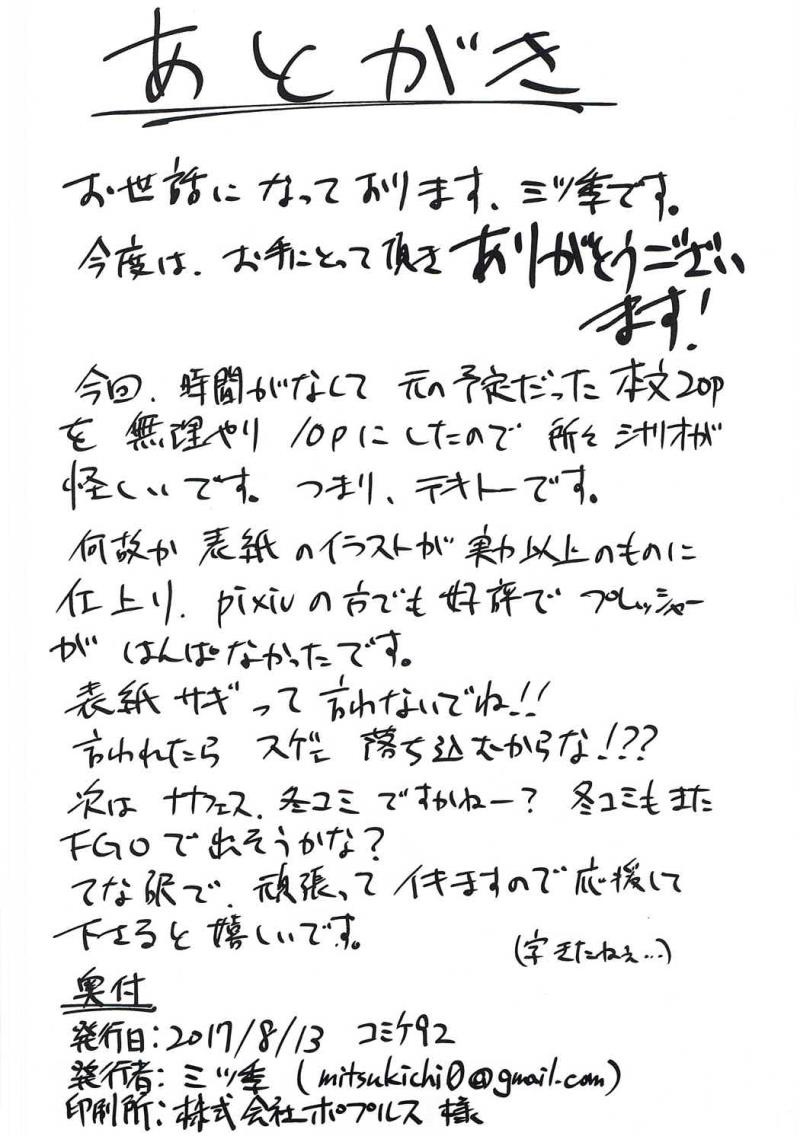 あとがき
お世話になっております、ミツ季です。
今度は、お手にとって頂きありがとうござい
ます!
今回、時間がなくて 元の予定だった 本文20p
を 無理やり 10pにしたので 所々 シナリオが
怪しいです。 つまり、テキトーです。
何故か 表紙のイラストが 実力以上のものに
仕上り、pixivの方でも 好評で プレッシャー
が はんぱなかったです。
表紙サギって 言わないでね!!
言われたら スゲェ 落ち込むからな!??
次は サンフェス、冬コミ ですかねー? 冬コミもまた
FGOで出そうかな?
てな訳で、頑張って イキますので 応援して
下さると嬉しいです。
(字きたねぇ…)
奥付
発行日:2017/8/13 コミケ92
発行者:ミツ季 (mitsukichi0@gmail.com)
印刷所:株式会社ポプルス 様